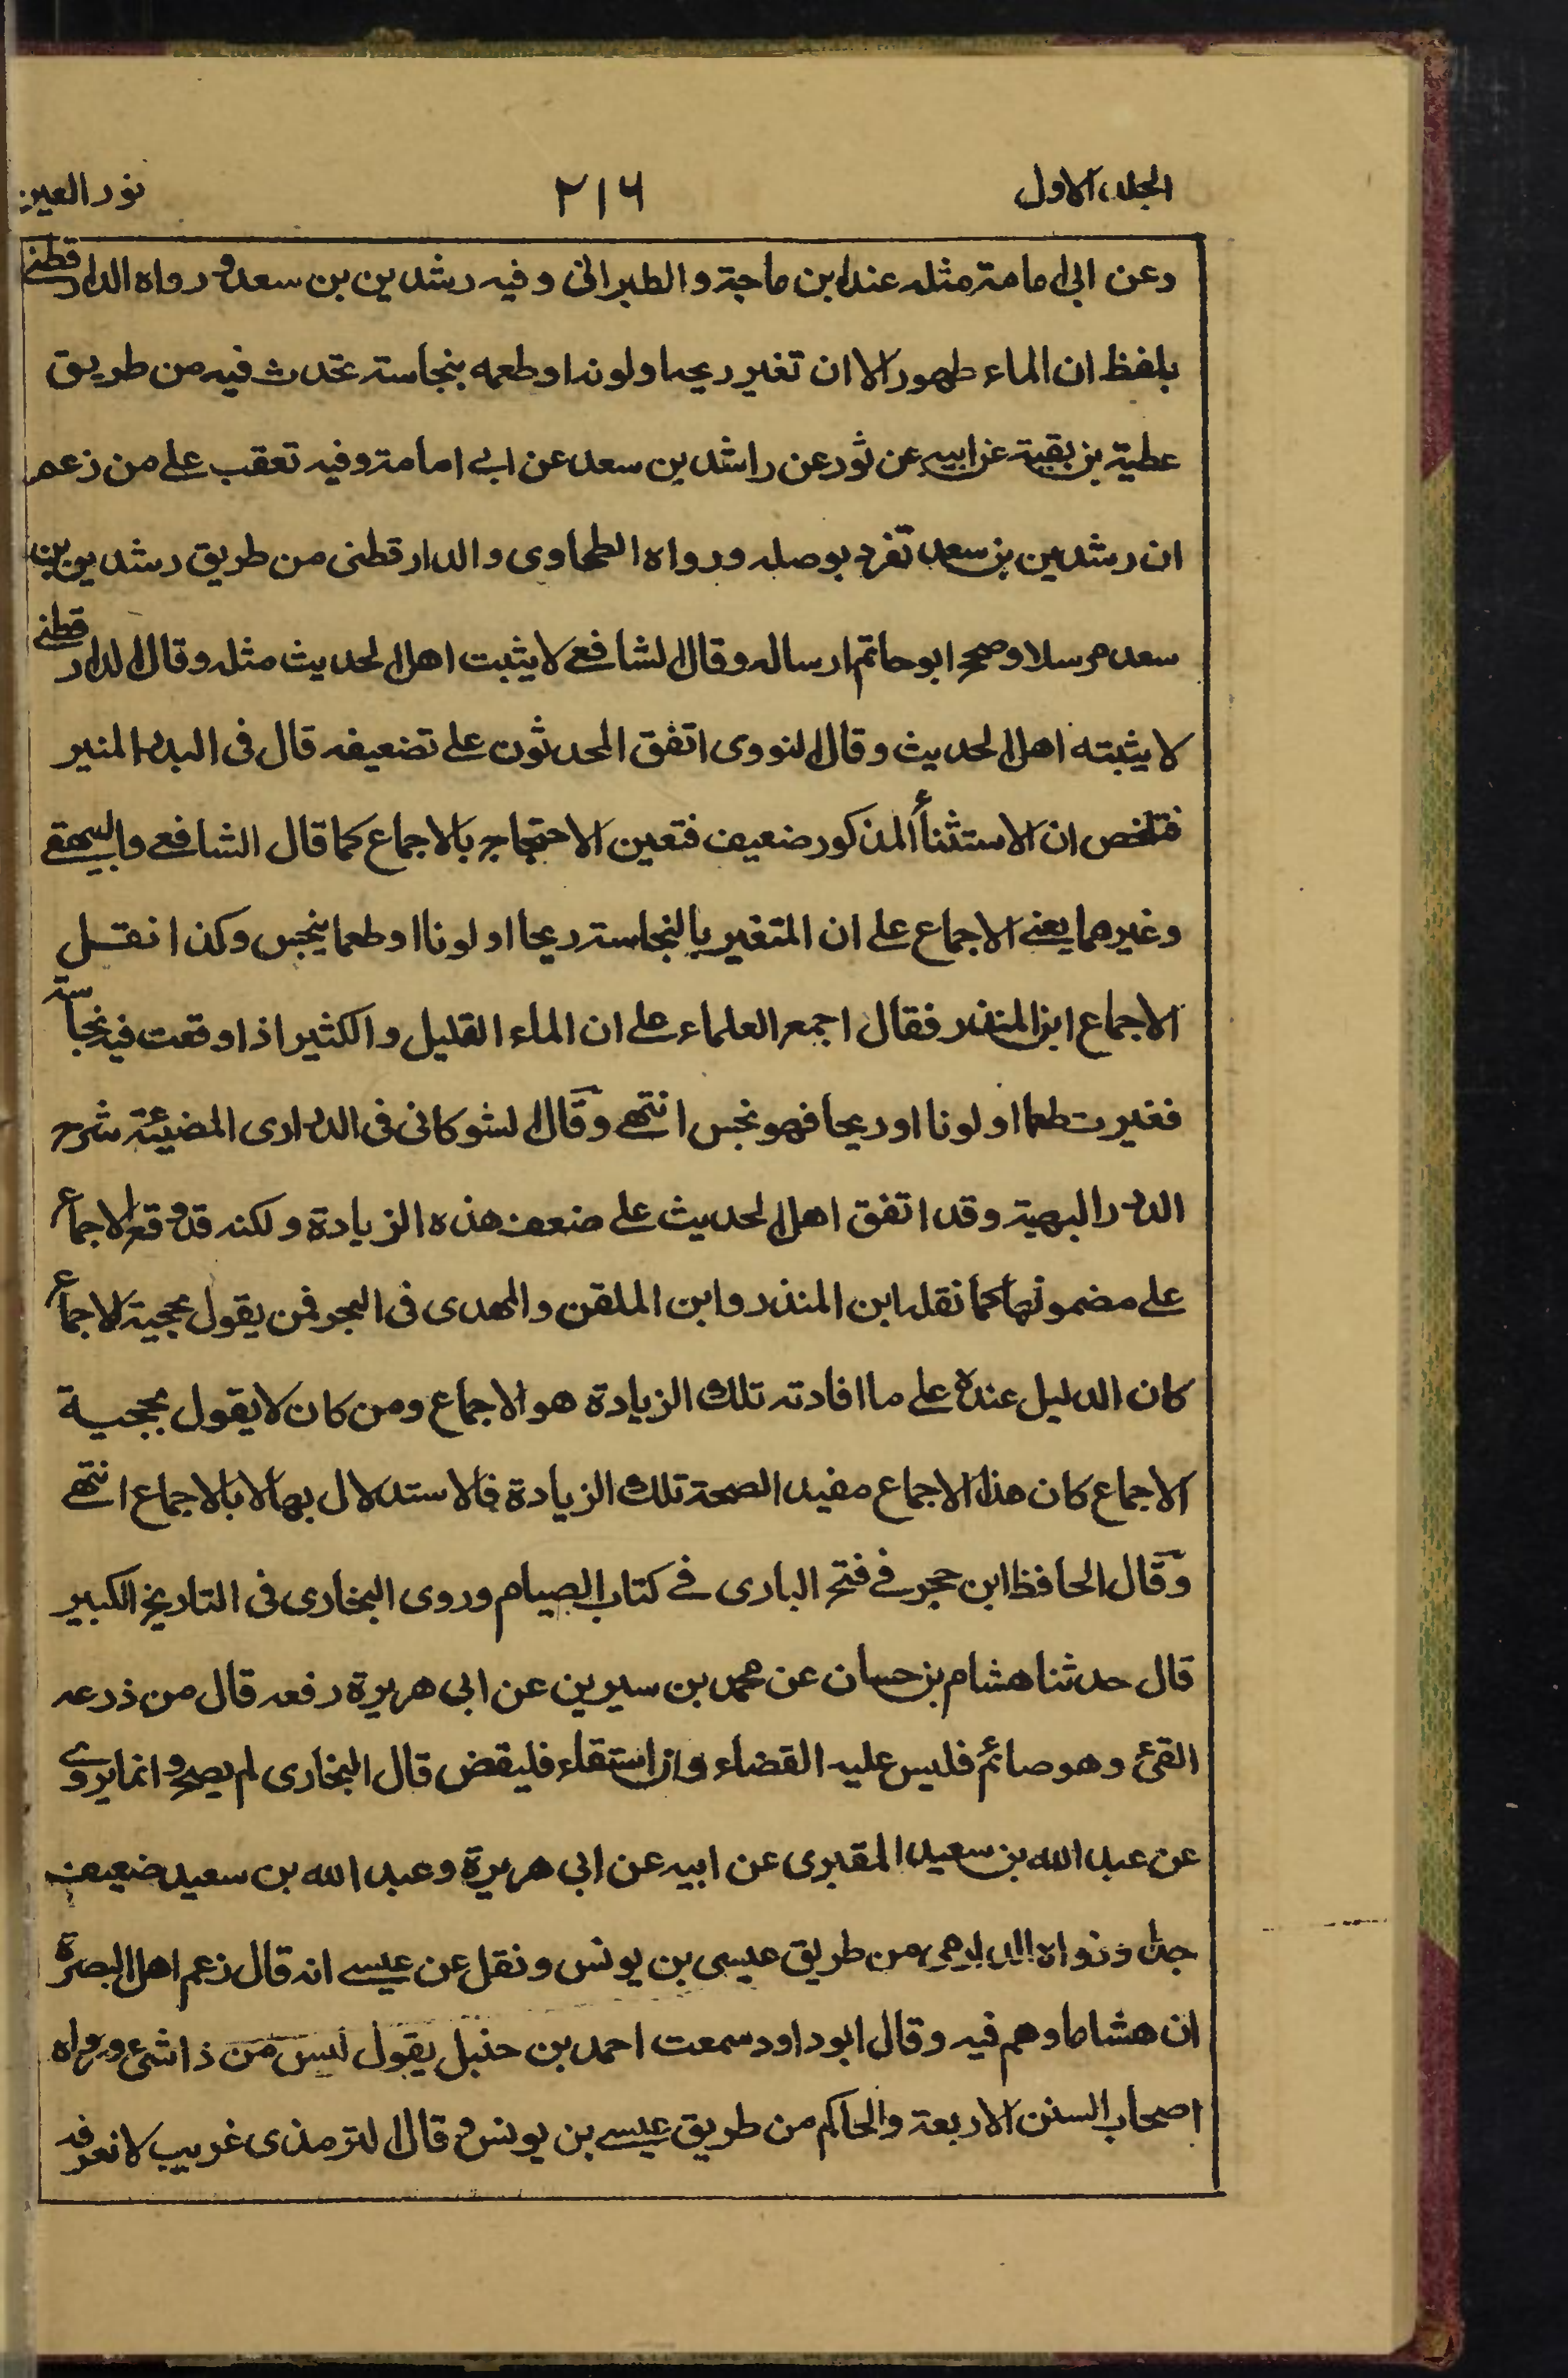 الجلد الاول ٢١٦ نور العين
وعن ابى امامة مثله عند ابن ماجة والطبرانى وفيه رشدين بن سعد ورواه الدارقطنى
بلفظ ان الماء طهور الا ان تغير ريحه او لونه او طعمه بنجاسة تحدث فيه من طريق
عطية بن بقية عن ابيه عن ثور عن راشد بن سعد عن ابى امامة وفيه تعقب على من زعم
ان رشدين بن سعد تفرد بوصله ورواه الطحاوى والدارقطنى من طريق رشدين بن
سعد مرسلا وصحح ابو حاتم ارساله وقال الشافعى لا يثبت اهل الحديث مثله وقال الدارقطنى
لا يثبته اهل الحديث وقال النووى اتفق المحدثون على تضعيفه قال فى البدر المنير
فتلخص ان الاستثناء المذكور ضعيف فتعين الاحتجاج بالاجماع كما قال الشافعى والبيهقى
وغيرهما يعنى الاجماع على ان المتغير بالنجاسة ريحا او لونا او طعما ينجس وكذا نقل
الاجماع ابن المنذر فقال اجمع العلماء على ان الماء القليل والكثير اذا وقعت فيه نجاسة
فغيرت طعما او لونا او ريحا فهو نجس انتهى وقال الشوكانى فى الدرارى المضيئة شرح
الدرر البهية وقد اتفق اهل الحديث على ضعف هذه الزيادة ولكنه قد وقع الاجماع
على مضمونها كما نقله ابن المنذر وابن الملقن والمهدى فى البحر فمن يقول بحجية الاجماع
كان الدليل عنده على ما افادته تلك الزيادة هو الاجماع ومن كان لا يقول بحجية
الاجماع كان هذا الاجماع مفيد الصحة تلك الزيادة فالاستدلال بها لا بالاجماع انتهى
وقال الحافظ ابن حجر فى فتح البارى فى كتاب الصيام وروى البخارى فى التاريخ الكبير
قال حدثنا هشام بن حسان عن محمد بن سيرين عن ابى هريرة رفعه قال من ذرعه
القئ وهو صائم فليس عليه القضاء وان استقاء فليقض قال البخارى لم يصح وانما يروى
عن عبد الله بن سعيد المقبرى عن ابيه عن ابى هريرة وعبد الله بن سعيد ضعيف
جدا ورواه الدارمى من طريق عيسى بن يونس ونقل عن عيسى انه قال زعم اهل البصرة
ان هشاما وهم فيه وقال ابو داود سمعت احمد بن حنبل يقول ليس من ذا شئ ورواه
اصحاب السنن الاربعة والحاكم من طريق عيسى بن يونس وقال الترمذى غريب لا نعرفه